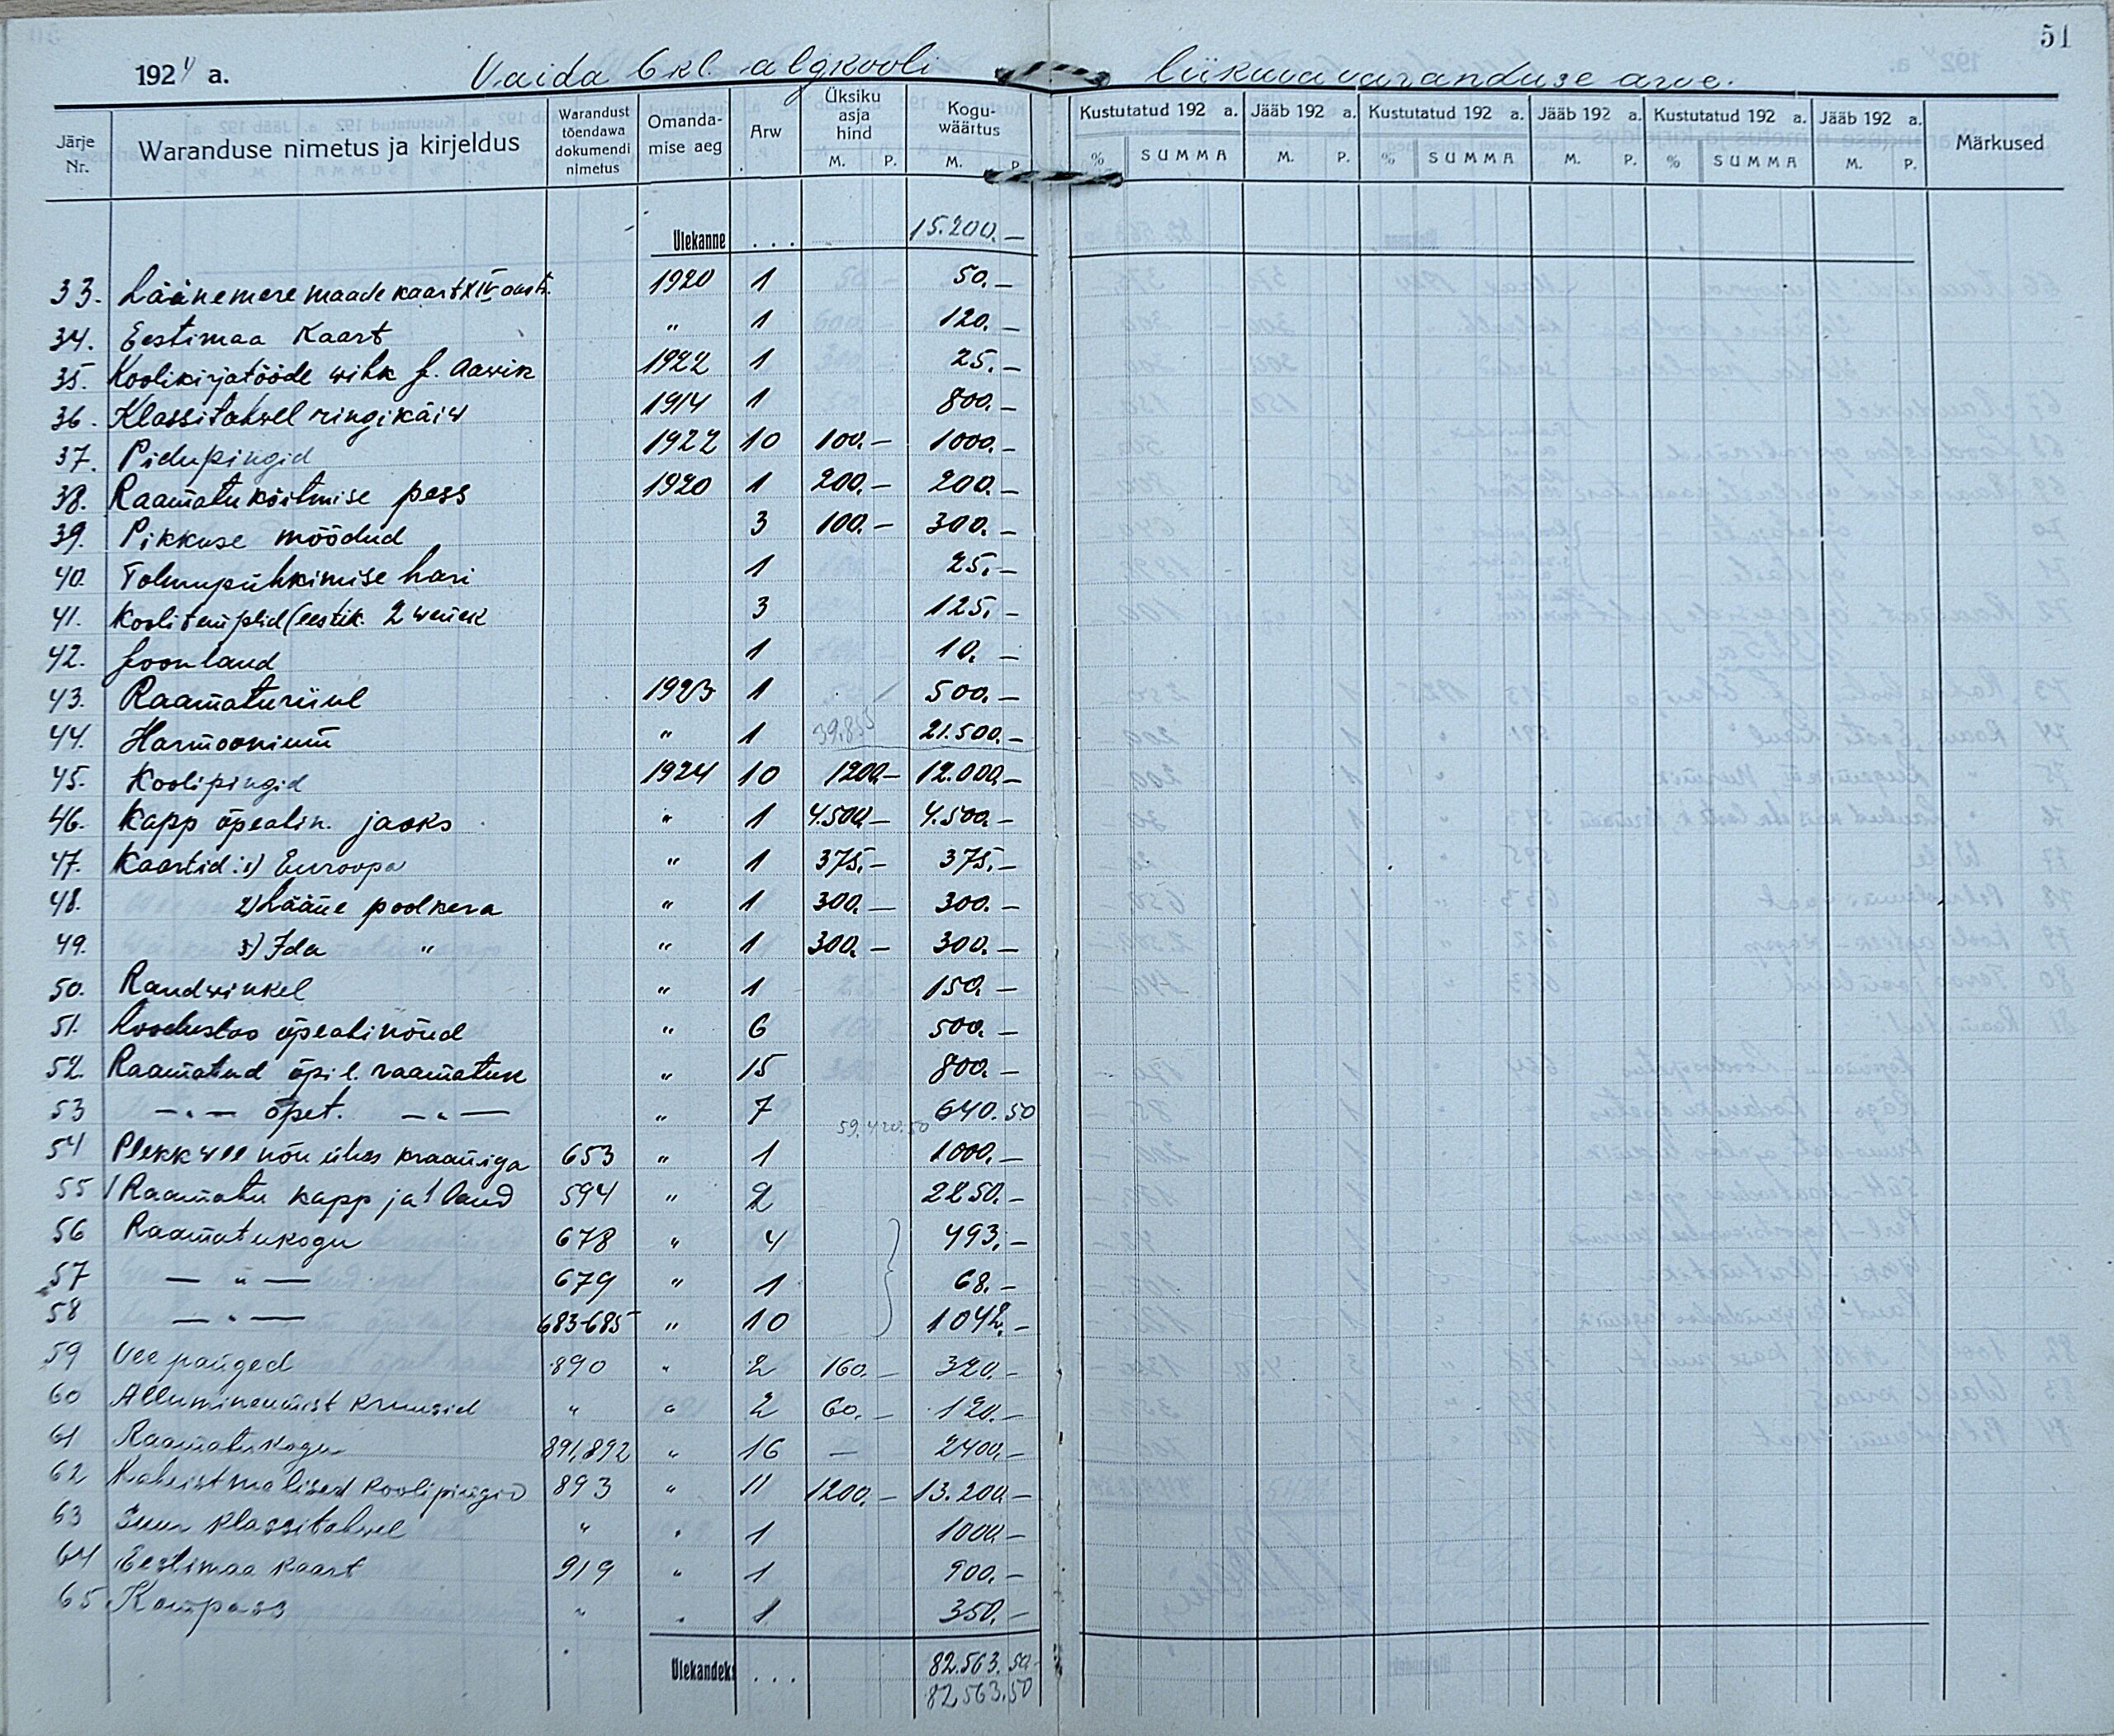 51
1924 a. Vaida 6 kl. algkooli liikuva varanduse arve.
Järje Nr. Waranduse nimetus ja kirjeldus Warandust tõendawa dokumendi nimetus Omandamise aeg Arw Üksiku asja hind M. P. Koguwäärtus M. P. Kustutatud 192 a. % SUMMA Jääb 192 a. M. P. Kustutatud 192 a. % SUMMA Jääb 192 a. M. P. Kustutatud 192 a. % SUMMA Jääb 192 a. M. P. Märkused
Ulekanne ... 15.200.—
33. Läänemere maade kaart XIV aast. 1920 1 50.—
34. Eestimaa Kaart " 1 120.—
35. Koolikirjatööde wihk J. Aawik 1922 1 25.—
36. Klassitahwel ringikäiw 1914 1 800.—
37. Pidupingid 1922 10 100.— 1000.—
38. Raamatuköitmise pess 1920 1 200.— 200.—
39. Pikkuse mõõdud 3 100.— 300.—
40. Tolmupühkimise hari 1 25.—
41. Koolitemplid (eestik. 2 wenek 3 125.—
42. Joonlaud 1 10.—
43. Raamaturiiul 1923 1 500.—
44. Harmoonium " 1 39.855 21.500.—
45. Koolipingid 1924 10 1200.— 12.000.—
46. Kapp õpeabin. jaoks " 1 4.500.— 4.500.—
47. Kaartid: 1) Euroopa " 1 375.— 375.—
48. 2) Lääne poolkera " 1 300.— 300.—
49. 3) Ida " " 1 300.— 300.—
50. Raudwinkel " 1 150.—
51. Loodusloo õpeabinõud " 6 500.—
52. Raamatud õpil. raamatuk " 15 800.—
53 —"— õpet. —"— " 7 640.50
59.420.50
54 Plekk wee nõu ühes kraaniga 653 " 1 1000.—
55 1 Raamatu kapp ja 1 laud 594 " 2 2250.—
56 Raamatukogu 678 " 4 493.—
57 —"— 679 " 1 68.—
58 —"— 683-685 " 10 1042.—
59 Vee panged 890 " 2 160.— 320.—
60 Alluminiumist kruusid " " 2 60.— 120.—
61 Raamatukogu 891,892 " 16 — 2400.—
62 Kaheistmelised koolipingid 893 " 11 1200.— 13.200.—
63 Suur klassitahvel " " 1 1000.—
64 Eestimaa kaart 919 " 1 900.—
65 Kompass " " 1 350.—
Ulekandeks ... 82.563.50
82,563.50